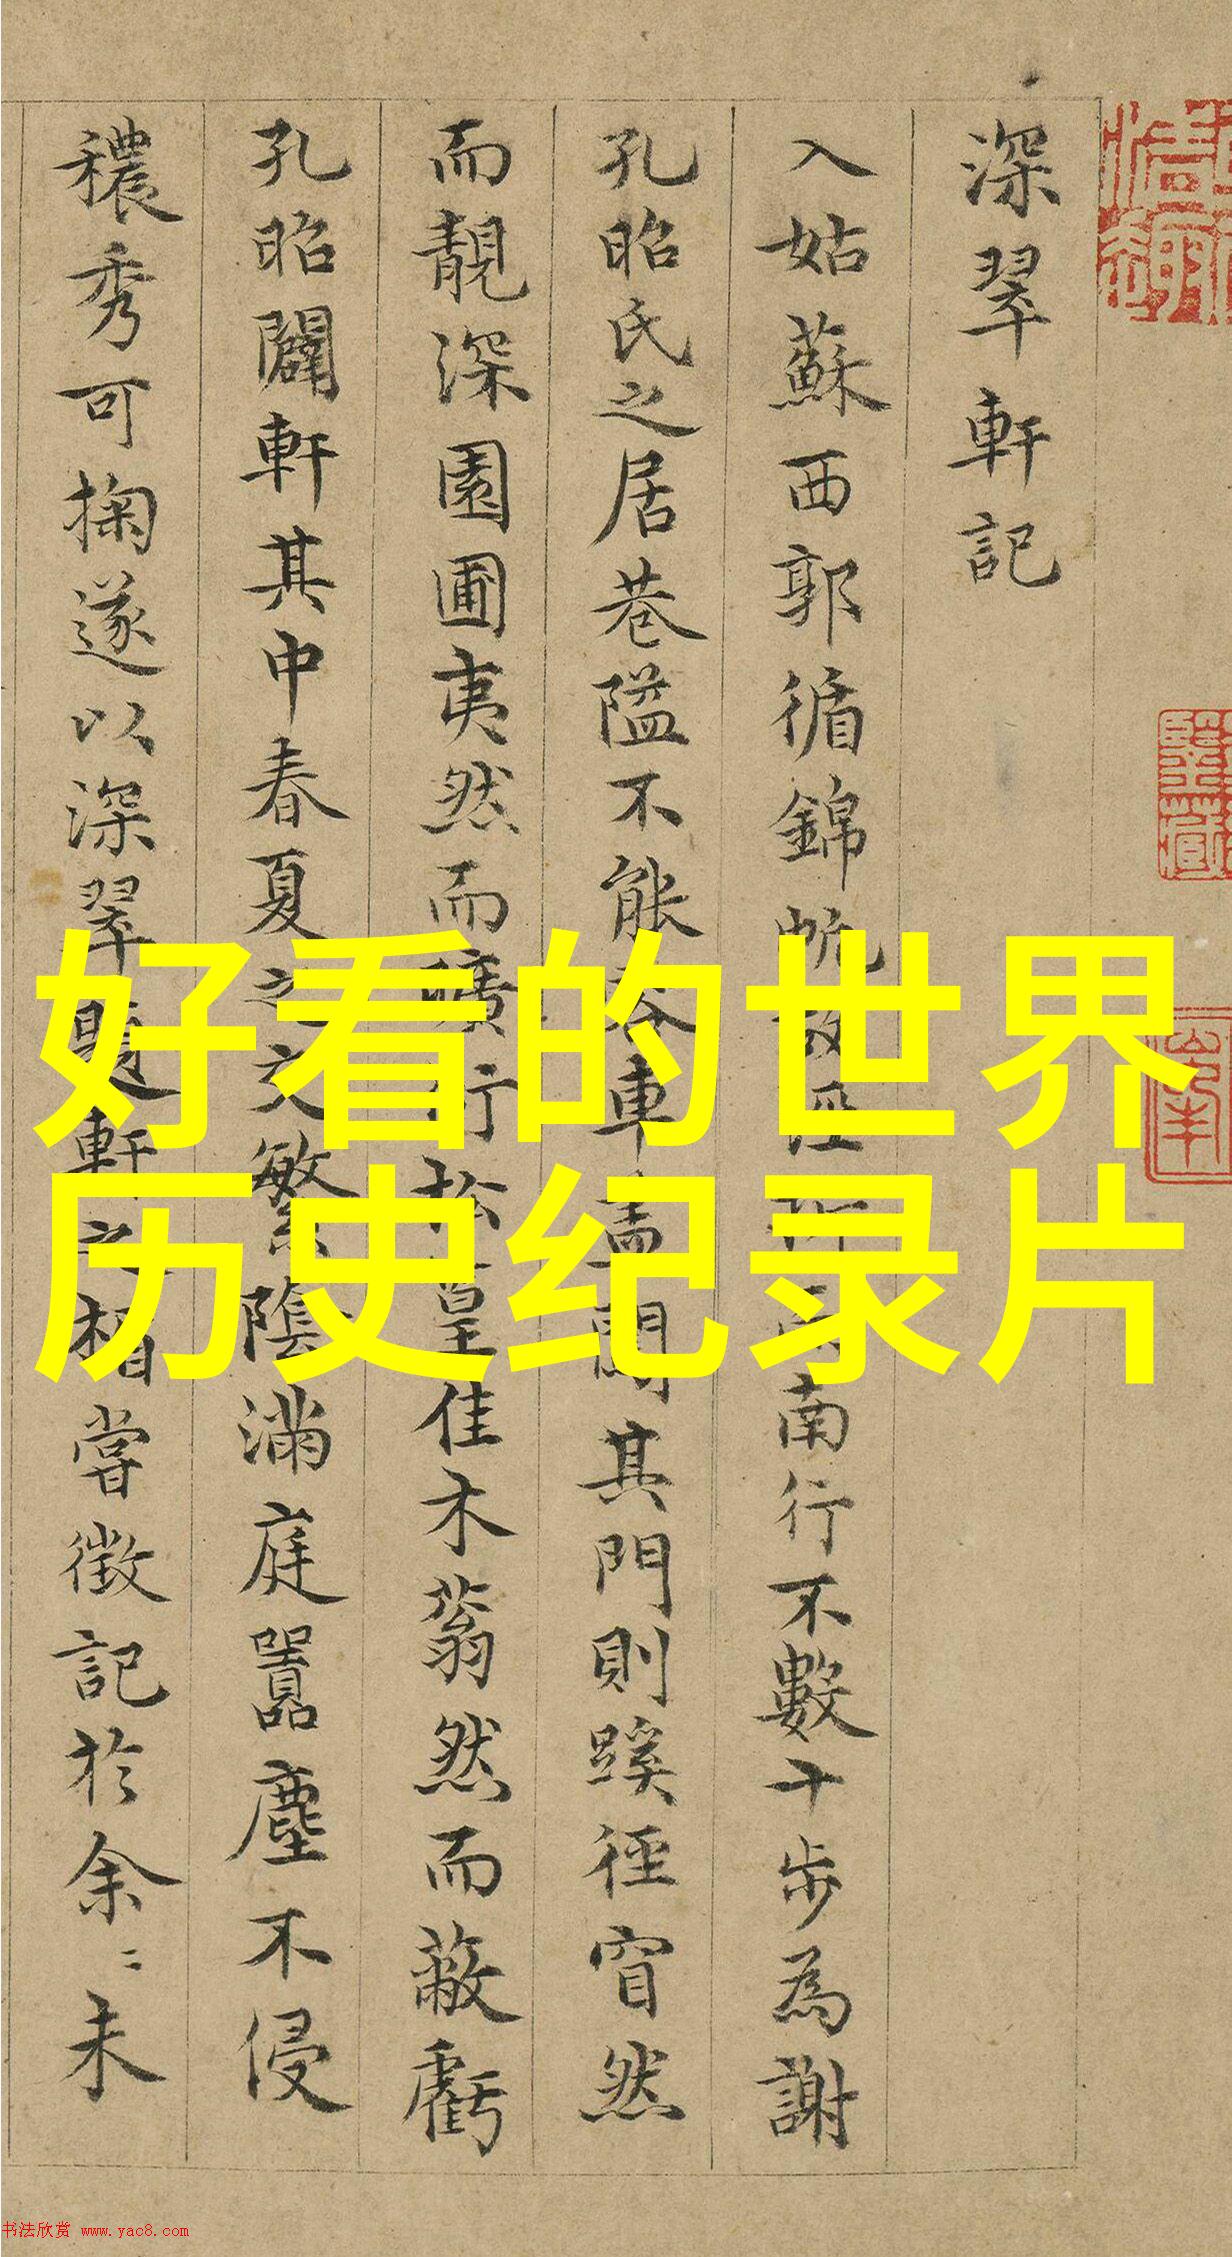 深翠軒記
入姑蘇西郭循錦帆南行不數十步為謝
孔昭氏之居巷隘不能容車蓋其門則蹊徑窅然
而靚深園圃夷然而曠行松篁佳木蓊然而蔽虧
孔昭闢軒其中春夏之交繁陰滿庭囂塵不侵
穠秀可掬遂以深翠題軒之楣嘗徵記於余〻未
好看的世界
历史纪录片
书法欣赏 www.yac8.com